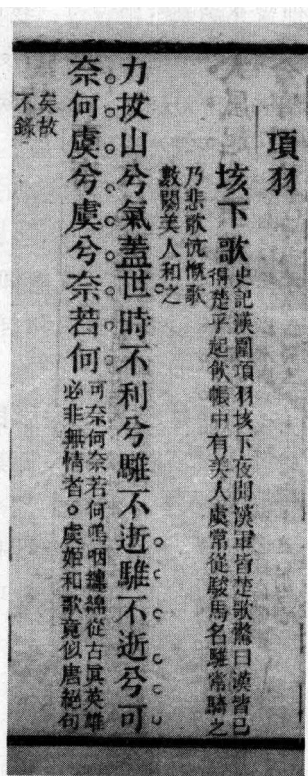 項羽
垓下歌
史記漢圍項羽垓下夜聞漢軍皆楚歌驚曰漢皆已
得楚乎起飲帳中有美人虞常從駿馬名騅常騎之
乃悲歌忼慨歌
數闋美人和之
力拔山兮氣蓋世時不利兮騅不逝騅不逝兮可
奈何虞兮虞兮奈若何
可奈何奈若何嗚咽纏綿從古真英雄
必非無情者。虞姬和歌竟似唐絕句
矣故
不錄